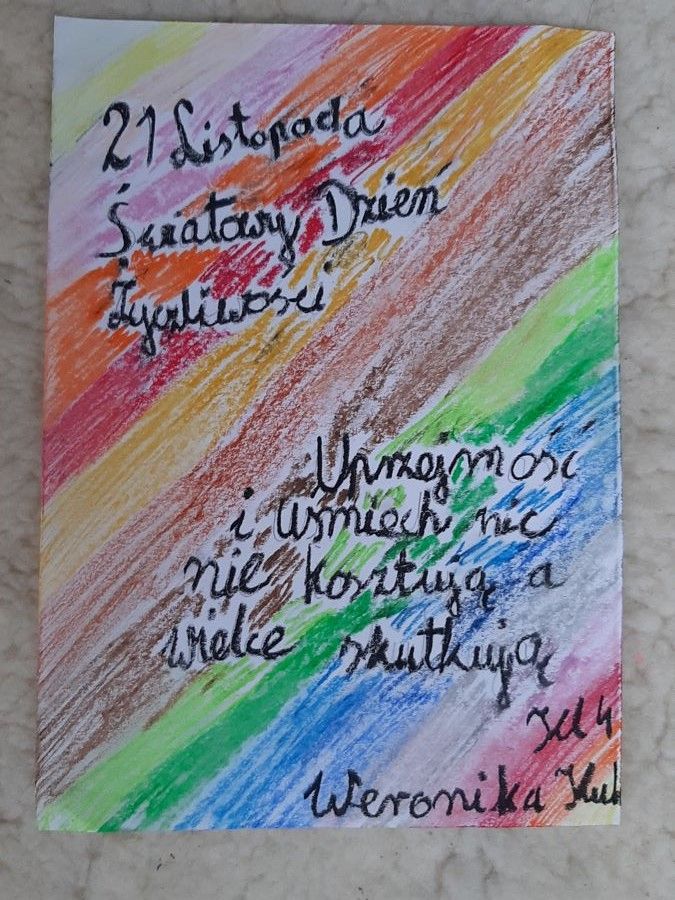 21 Listopada
Światowy Dzień
Życzliwości
Uprzejmość
i uśmiech nic
nie kosztują a
wielce skutkują
Kl 4
Weronika